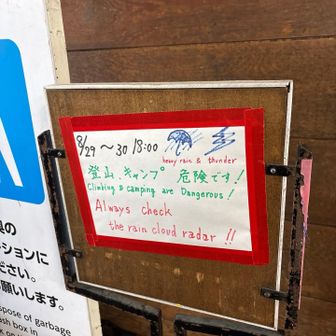 8/29 〜 30 18:00
heavy rain & thunder
登山、キャンプ 危険です!
Climbing & camping are Dangerous!
Always check
the rain cloud radar!!
ださい。
願いします。
spose of garbage
ash box in